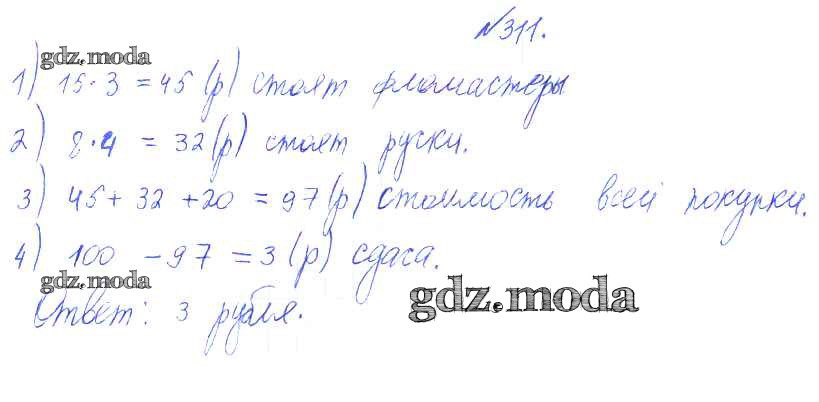 №311.
gdz.moda
1) 15·3 = 45 (р) стоят фломастеры
2) 8·4 = 32 (р) стоят ручки.
3) 45 + 32 + 20 = 97 (р) стоимость всей покупки.
4) 100 - 97 = 3 (р) сдача.
gdz.moda
gdz.moda
Ответ: 3 рубля.